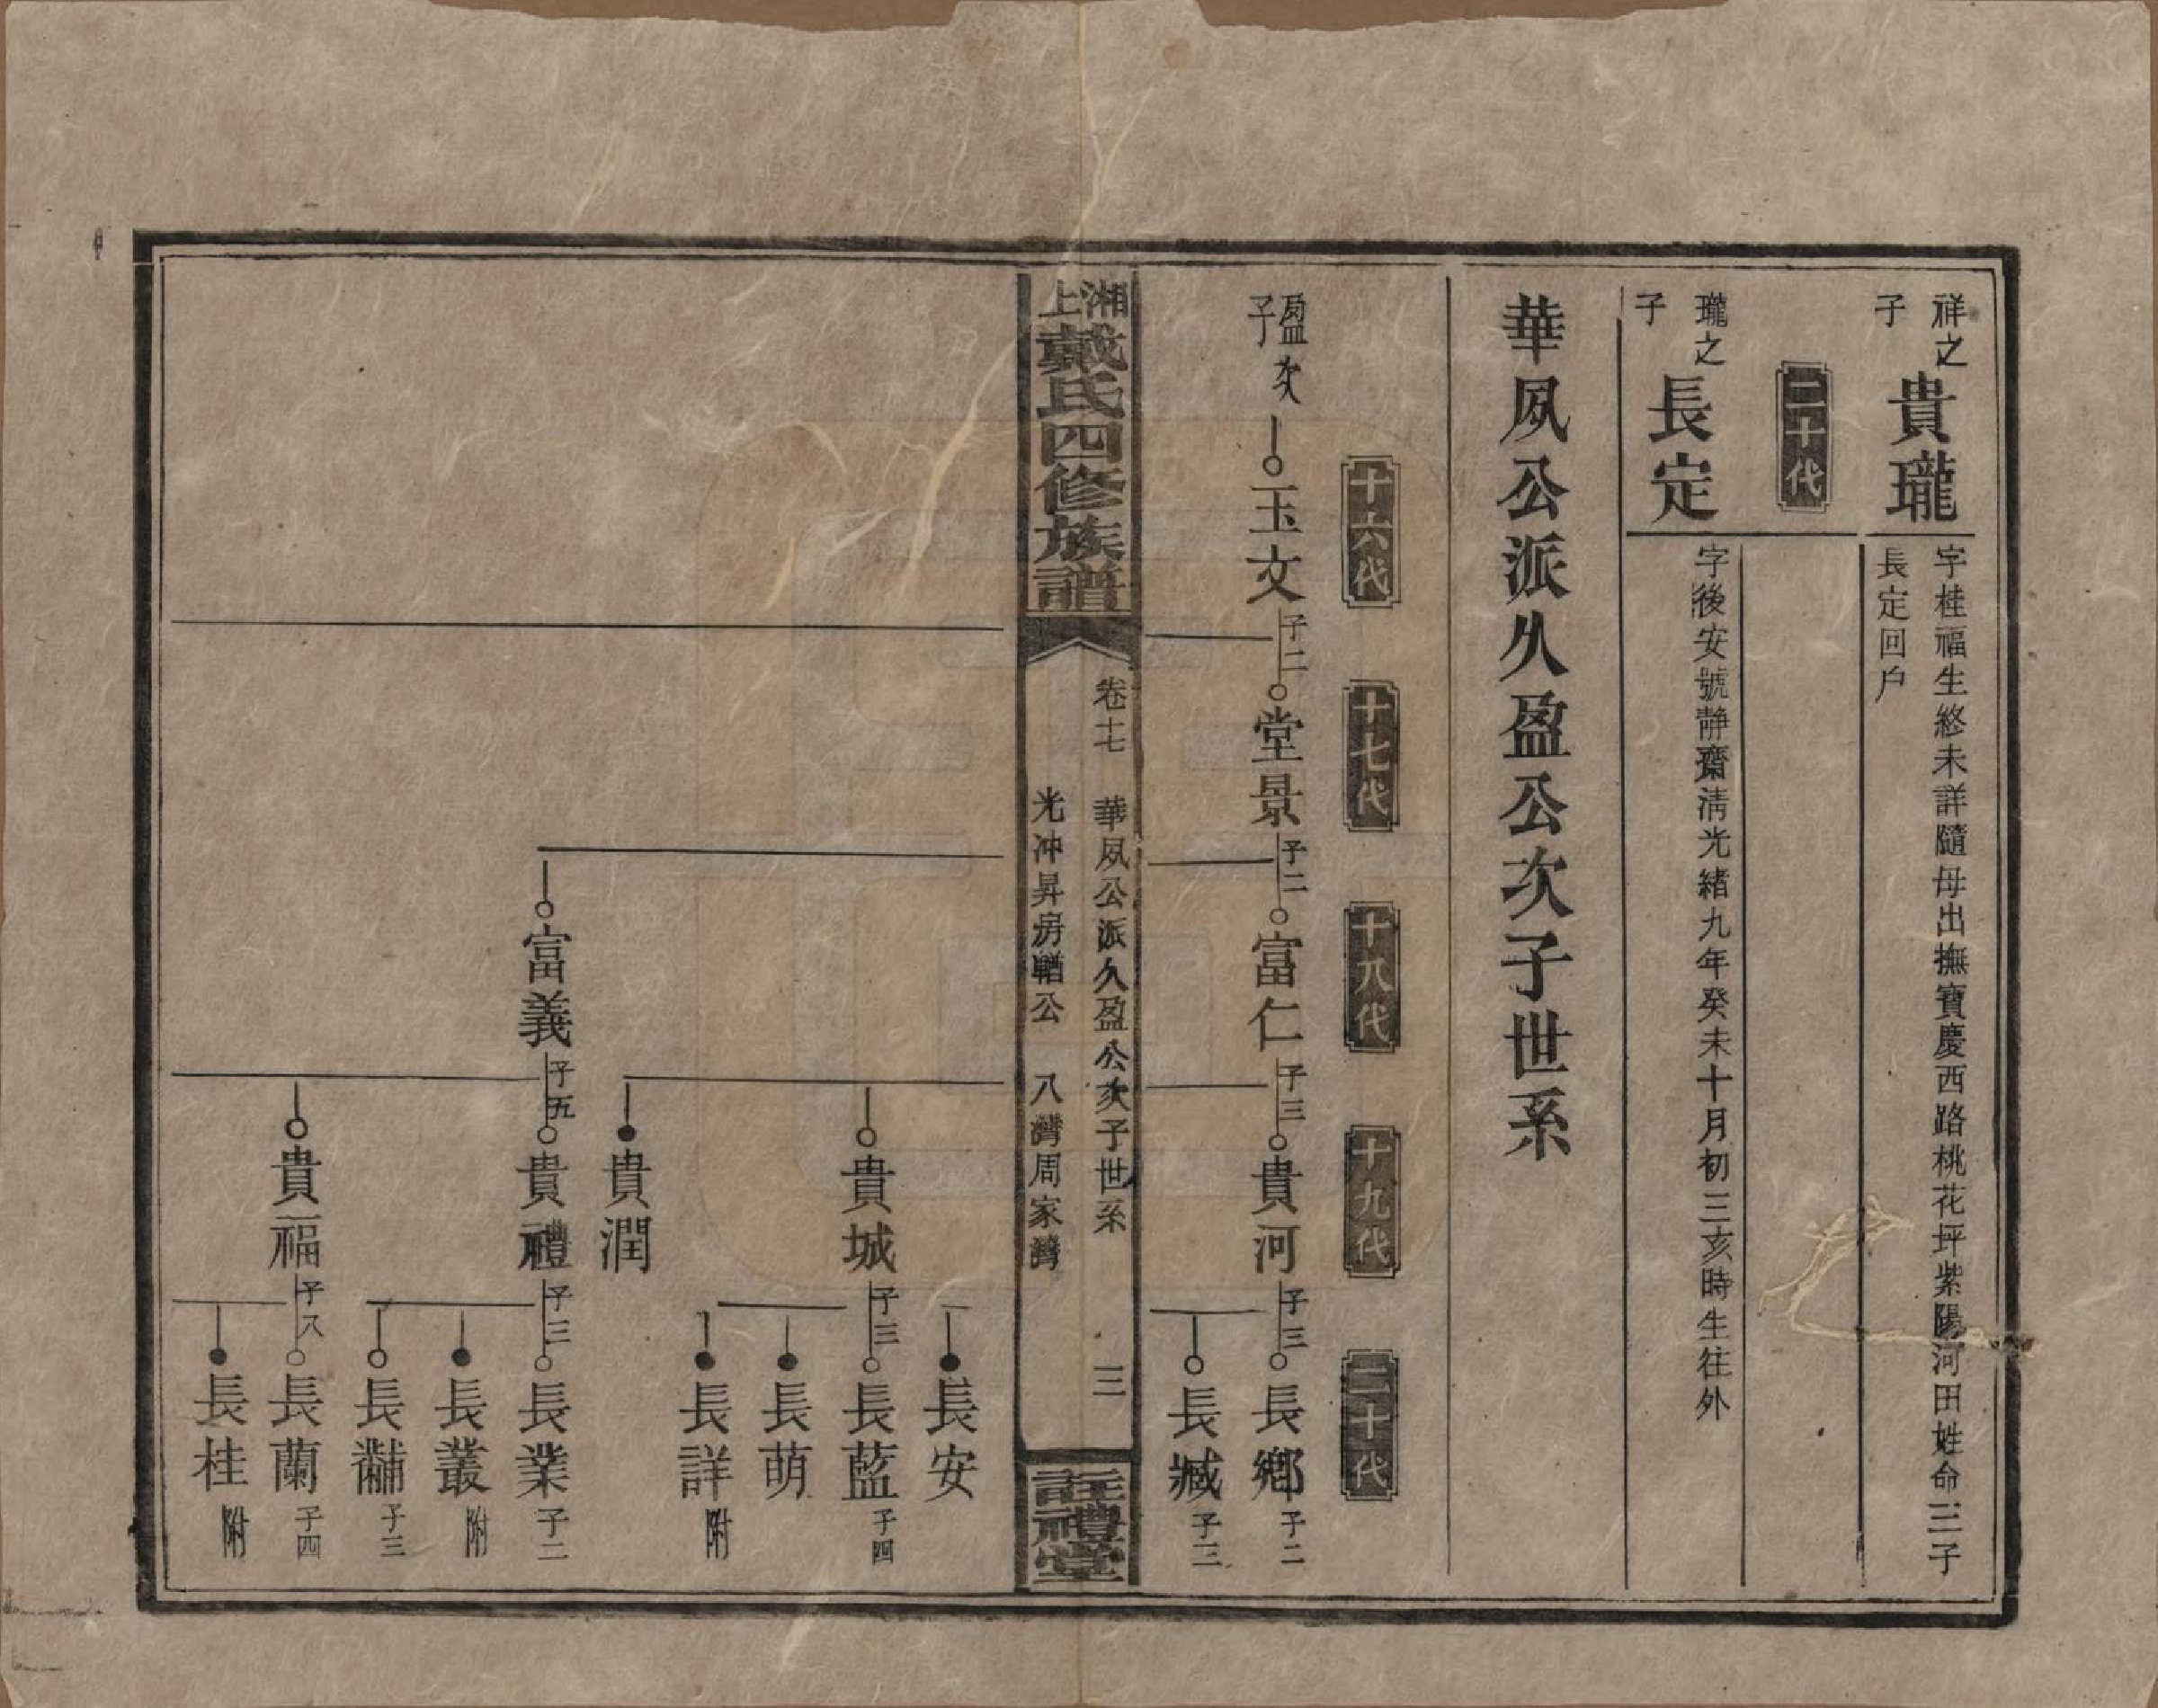 祥之子
貴瓏
字桂福生終未詳隨母出撫寶慶西路桃花坪紫陽河田姓命三子
長定回戶
二十代
瓏之子
長定
字後安號靜齋清光緒九年癸未十月初三亥時生往外
華夙公派久盈公次子世系
十六代
十七代
十八代
十九代
二十代
盈次子
玉文 子二
堂景 子二
富仁 子三
貴河 子三
長鄉 子二
長臧 子三
湘上戴氏四修族譜
卷十七 華夙公派久盈公次子世系 三
光冲昇房輶公 八灣周家灣
註禮堂
長安
貴城 子三
長藍 子四
長萌
長詳 附
貴潤
富義 子五
貴禮 子三
長業 子二
長叢 附
長黼 子三
貴福 子八
長蘭 子四
長桂 附